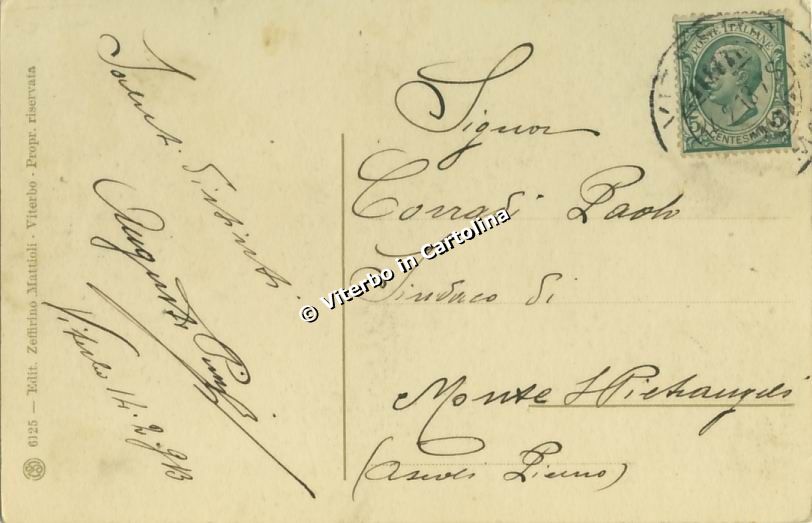 6125 — Edit. Zeffirino Mattioli - Viterbo - Propr. riservata
Salut. distinti
Augusto
Viterbo 14.2.913
POSTE ITALIANE
CENTESIMI
Signor
Corradi Paolo
Sindaco di
Monte
(Ascoli Piceno)
© Viterbo in Cartolina